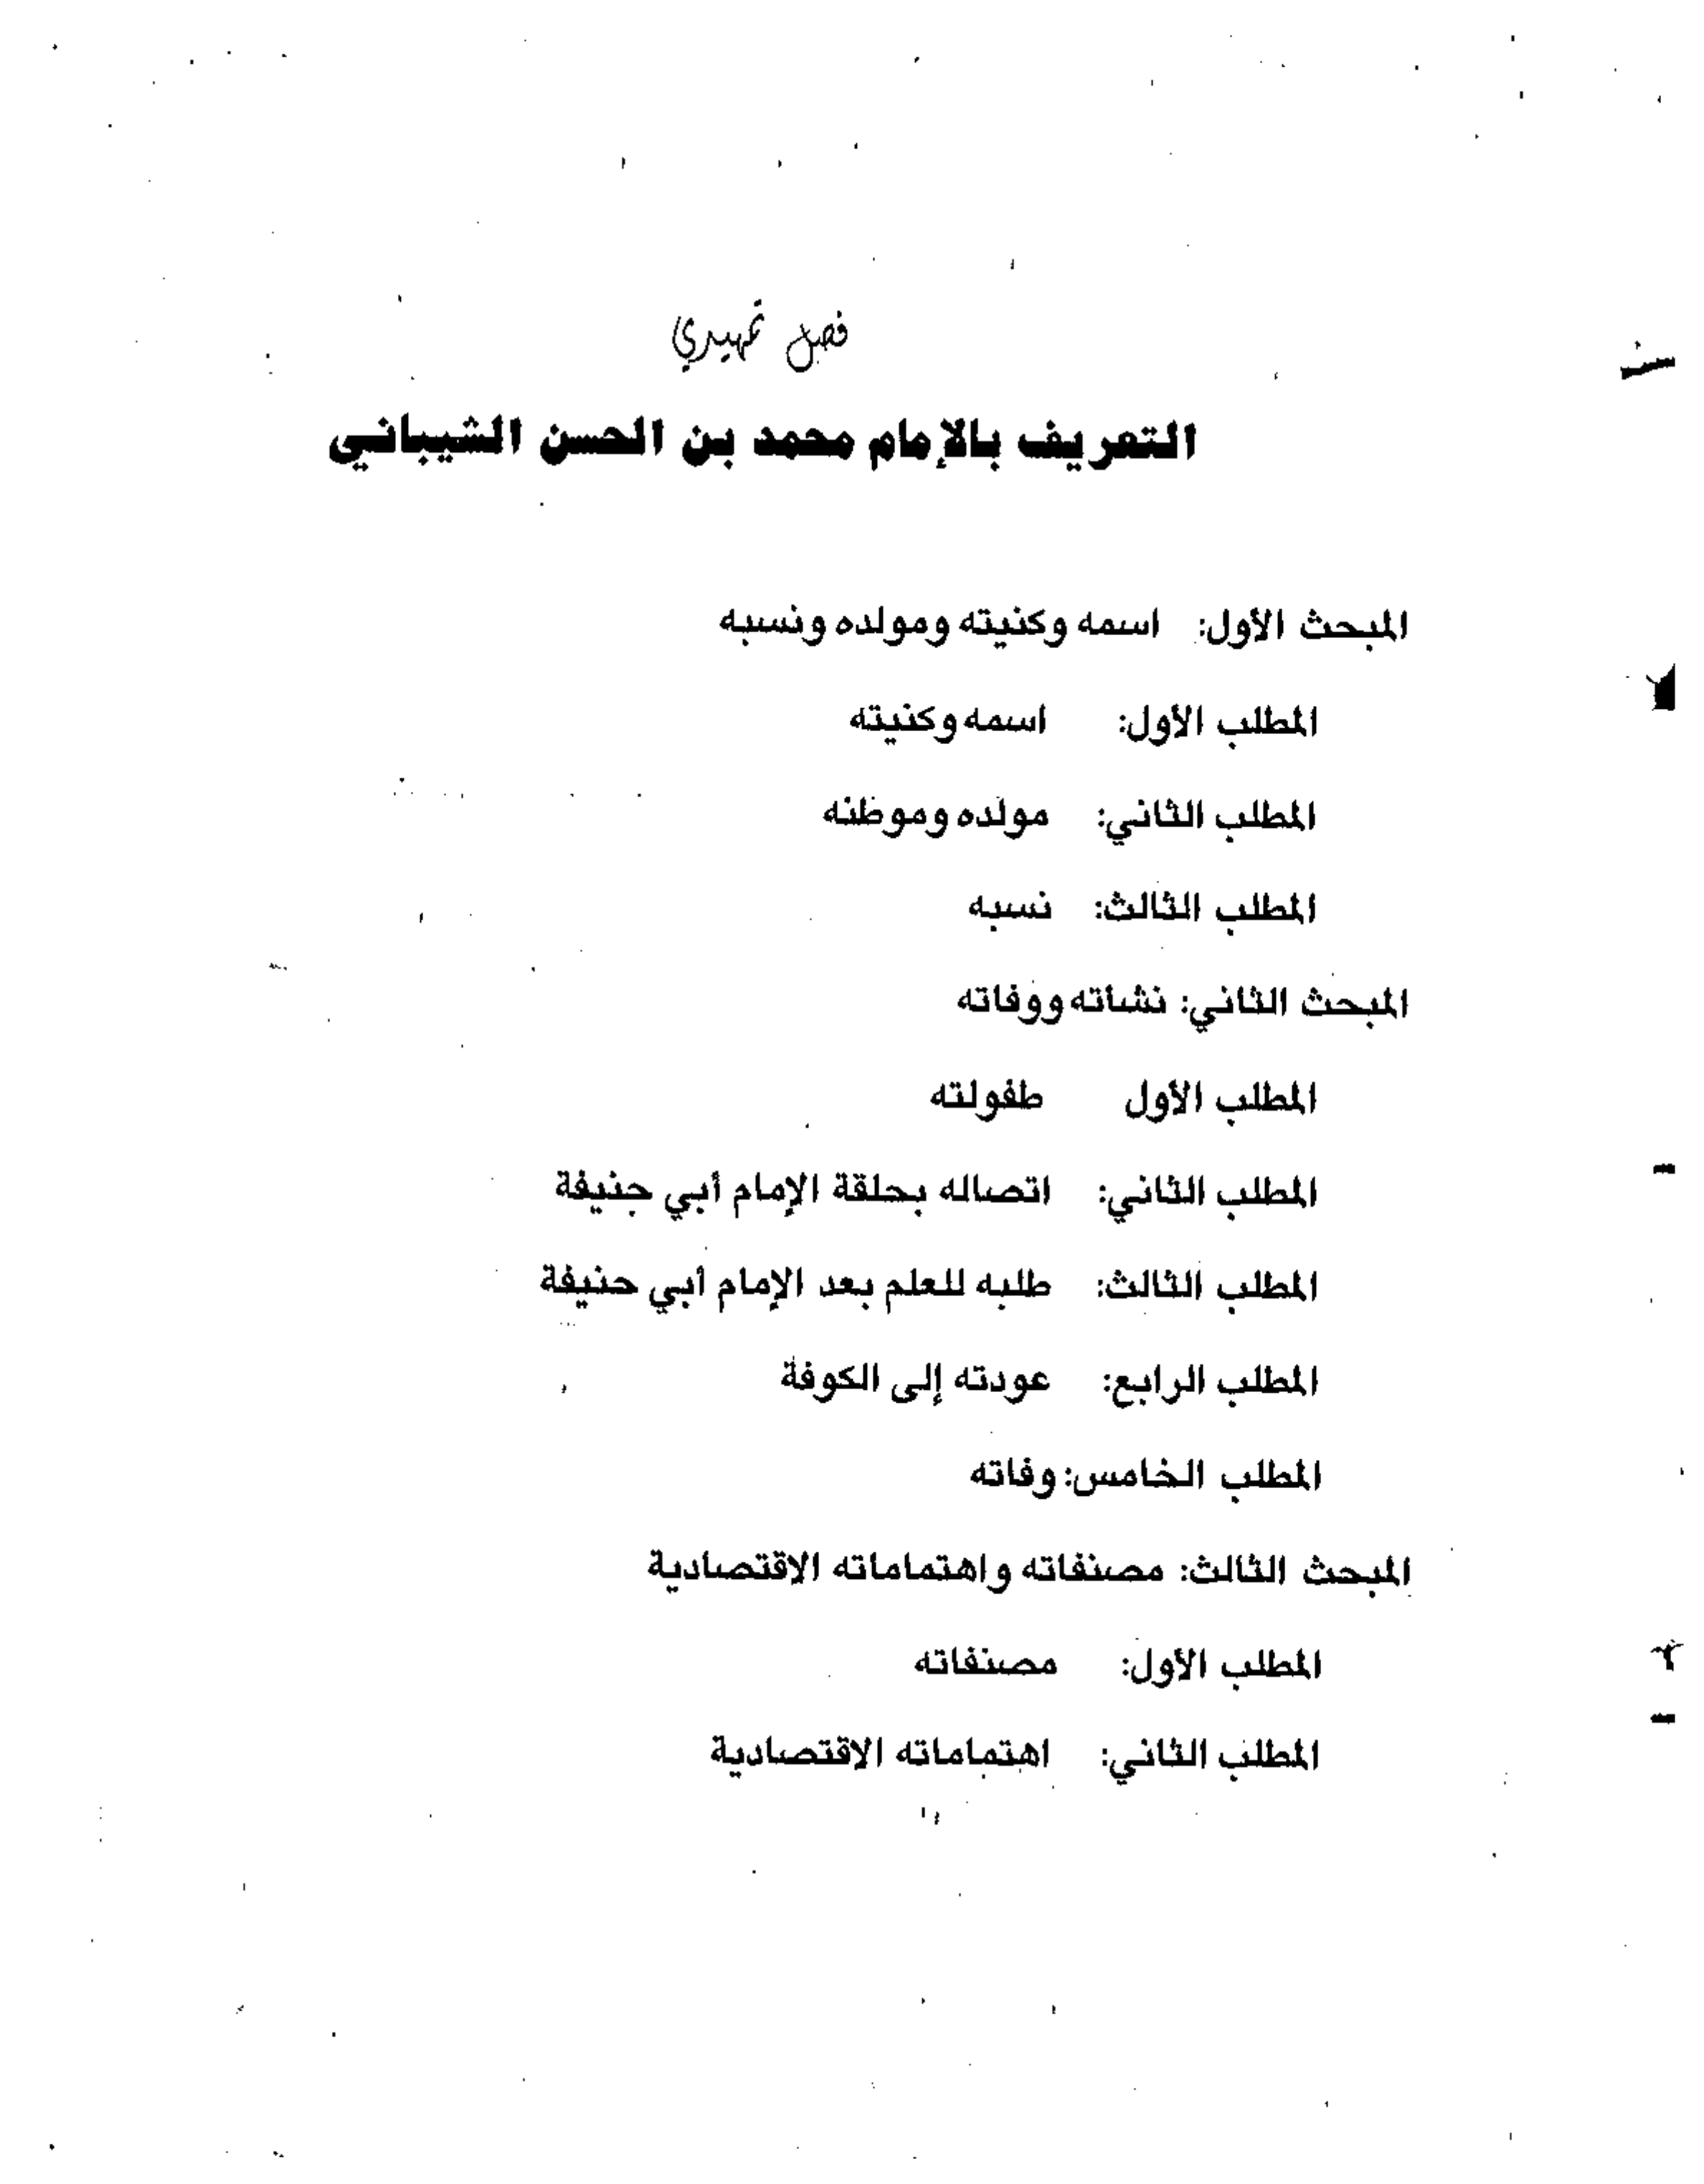 فصل تمهيدي
التعريف بالإمام محمد بن الحسن الشيباني
المبحث الأول: اسمه وكنيته ومولده ونسبه
المطلب الأول: اسمه وكنيته
المطلب الثاني: مولده وموطنه
المطلب الثالث: نسبه
المبحث الثاني: نشأته ووفاته
المطلب الأول طفولته
المطلب الثاني: اتصاله بحلقة الإمام أبي حنيفة
المطلب الثالث: طلبه للعلم بعد الإمام أبي حنيفة
المطلب الرابع: عودته إلى الكوفة
المطلب الخامس: وفاته
المبحث الثالث: مصنفاته واهتماماته الاقتصادية
المطلب الأول: مصنفاته
المطلب الثاني: اهتماماته الاقتصادية